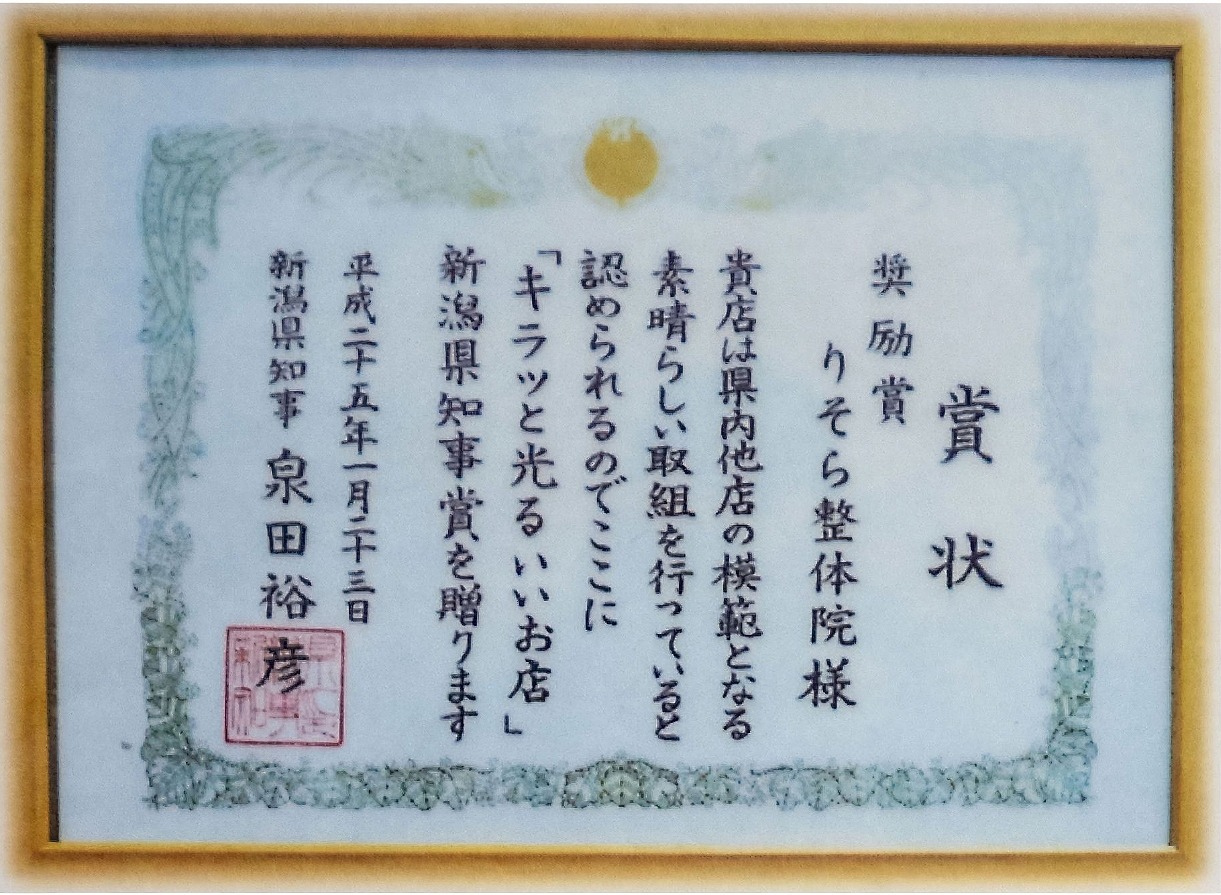 賞状
奨励賞
りそら整体院様
貴店は県内他店の模範となる
素晴らしい取組を行っていると
認められるのでここに
「キラッと光るいいお店」
新潟県知事賞を贈ります
平成二十五年一月二十三日
新潟県知事 泉田裕彦